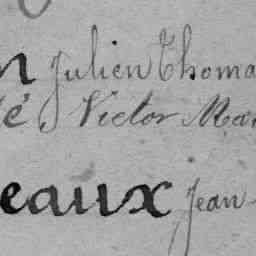 n Julien Thoma
é, Victor Ma
eaux Jean-